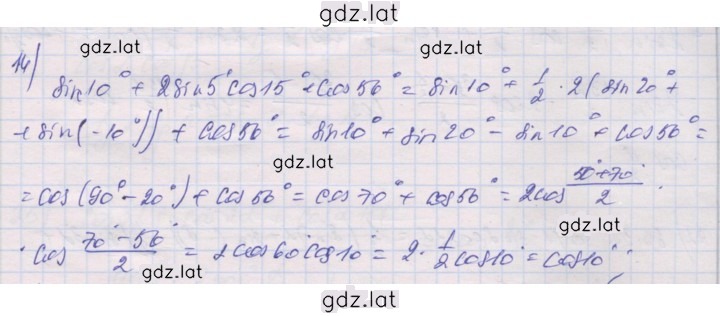 gdz.lat
gdz.lat gdz.lat
14)
sin10° + 2sin5°cos15° + cos50° = sin10° + 1/2 · 2(sin20° +
gdz.lat gdz.lat
+ sin(-10°)) + cos50° = sin10° + sin20° - sin10° + cos50° =
= cos(90° - 20°) + cos50° = cos70° + cos50° = 2cos (50° + 70°)/2 ·
gdz.lat
· cos (70° - 50°)/2 = 2cos60°cos10° = 2 · 1/2 cos10° = cos10°
gdz.lat
gdz.lat